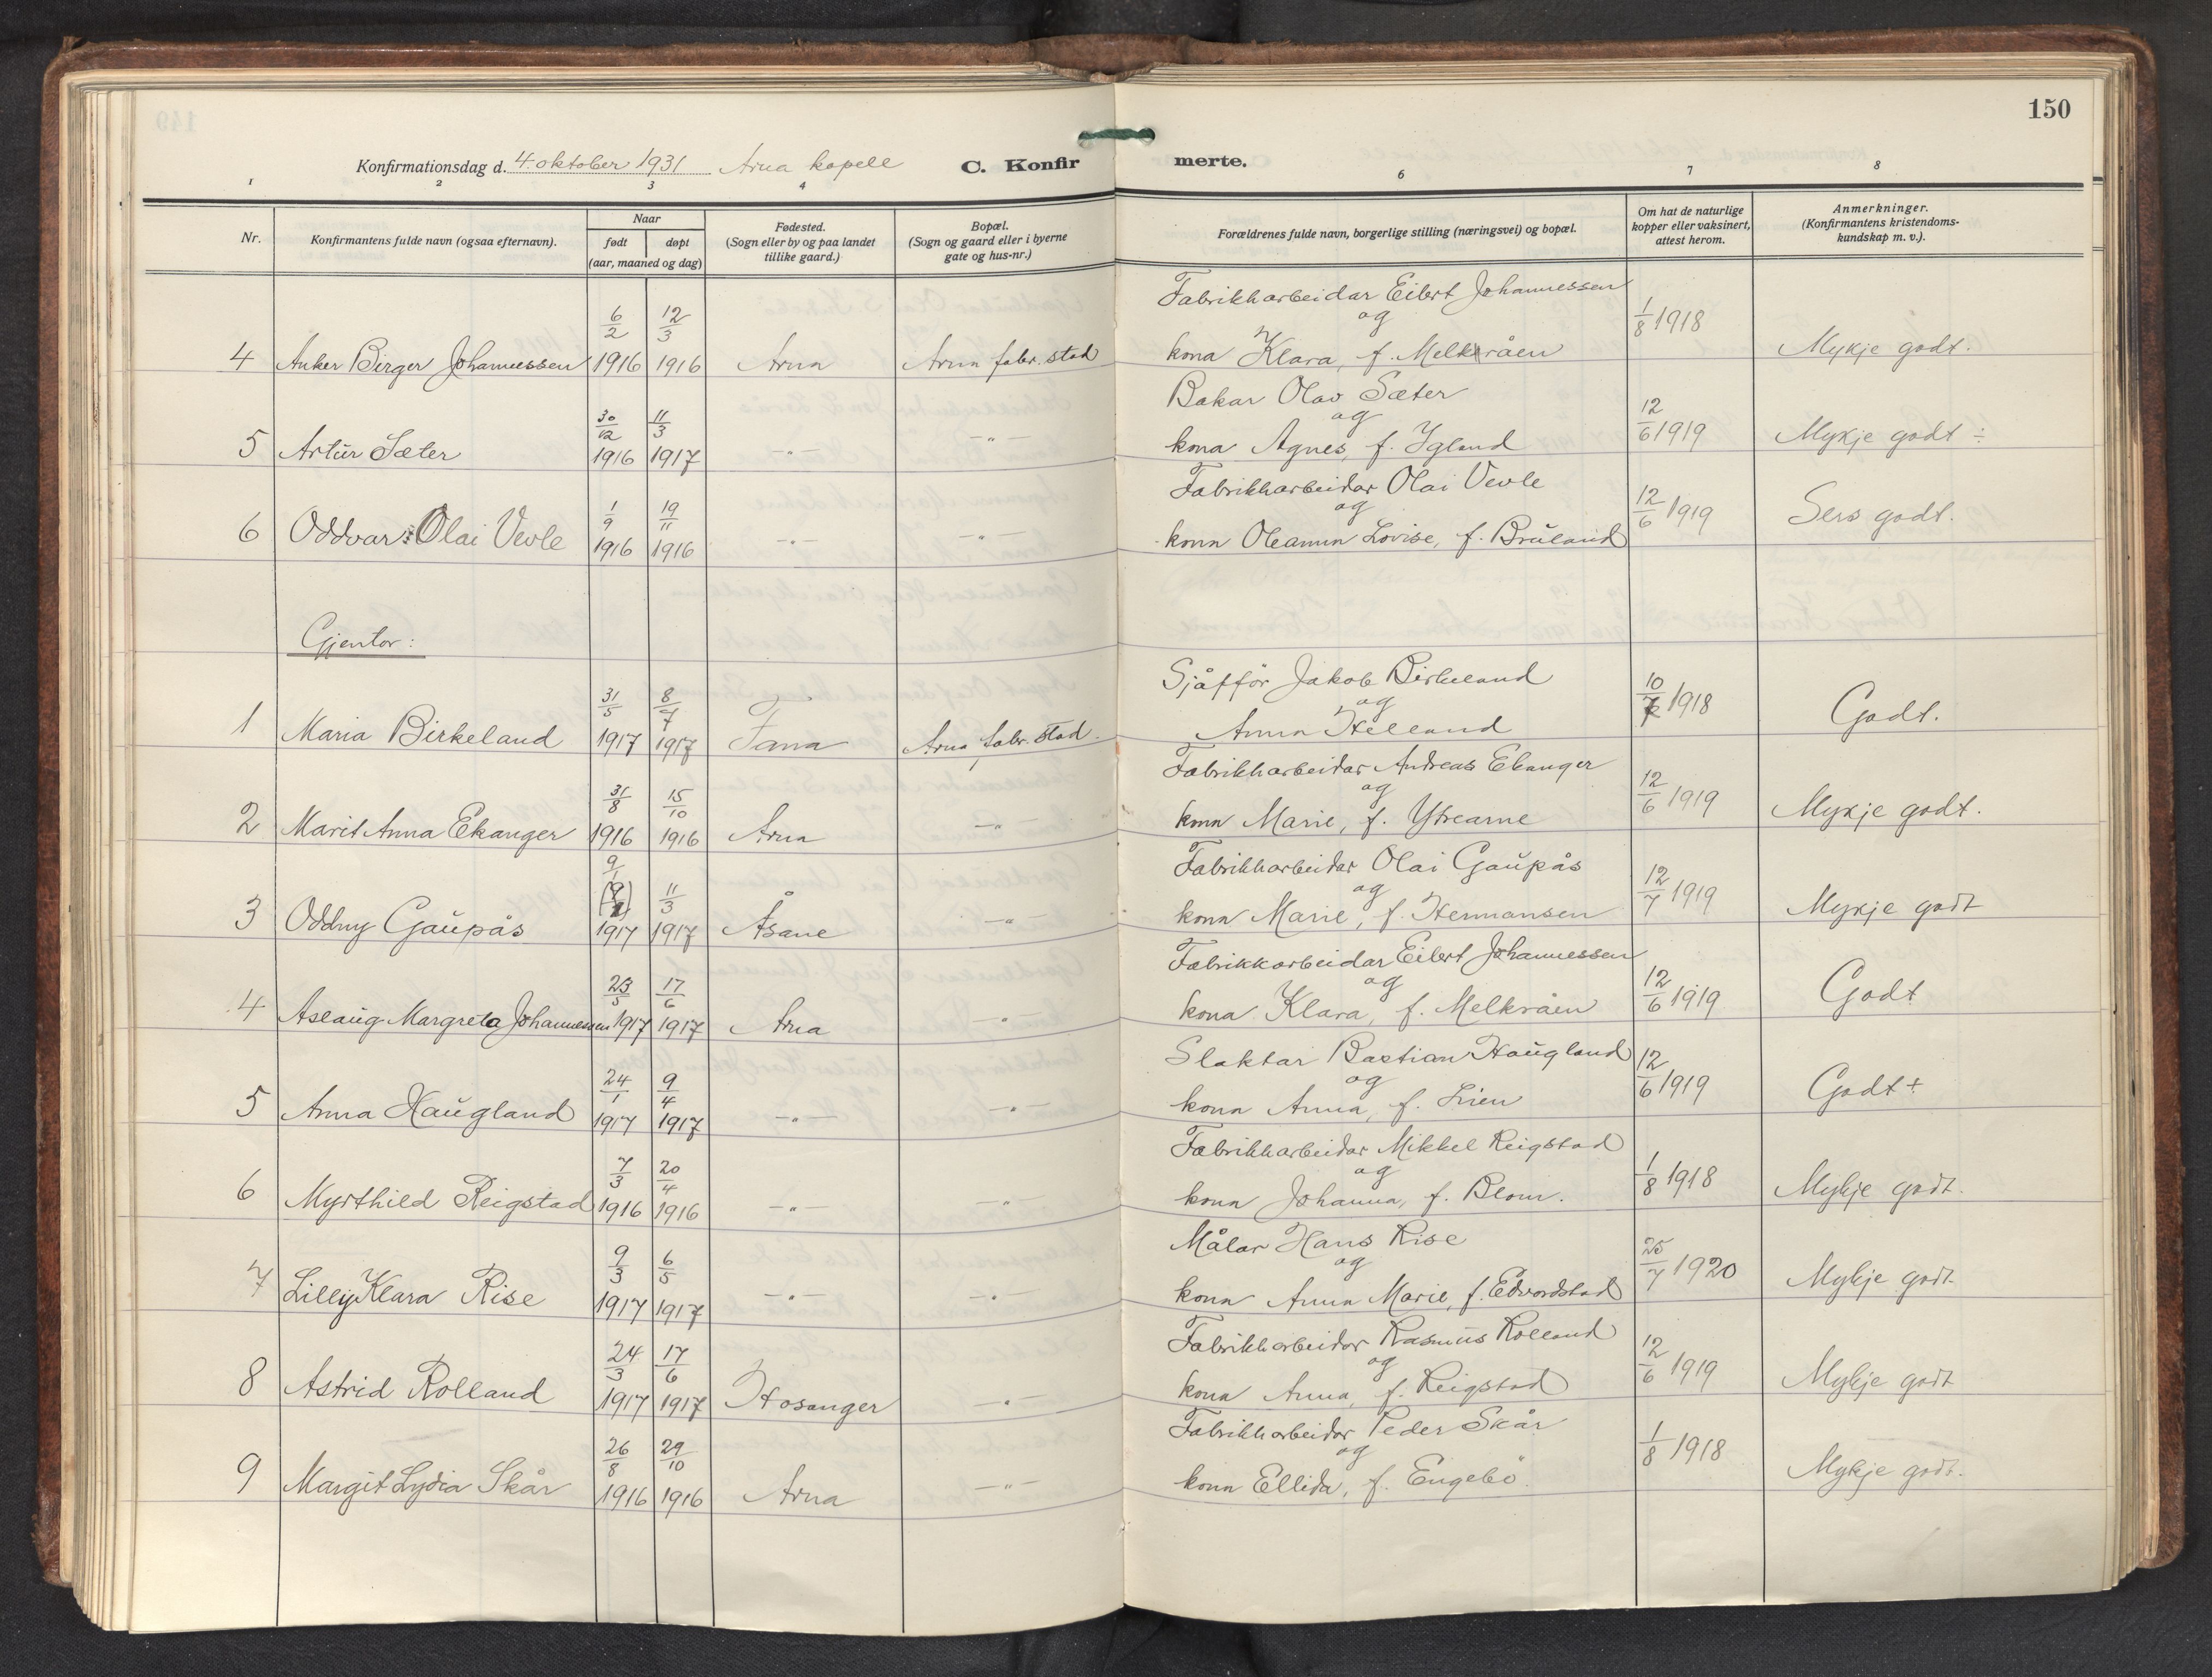 150
Konfirmationsdag d. 4. oktober 1931 Arna kapell C. Konfir merte.
1 2 3 4 6 7 8
Nr. Konfirmantens fulde navn (ogsaa efternavn). Naar født døpt (aar, maaned og dag) Fødested. (Sogn eller by og paa landet tillike gaard.) Bopæl. (Sogn og gaard eller i byerne gate og hus-nr.) Forældrenes fulde navn, borgerlige stilling (næringsvei) og bopæl. Om hat de naturlige kopper eller vaksinert, attest herom. Anmerkninger. (Konfirmantens kristendoms-kundskap m. v.).
6/2 12/3 Fabrikkarbeidar Eilert Johannessen og 1/8 1918
4 Anker Birger Johannessen 1916 1916 Arna Arna fabr. stad kona Klara, f. Melkråen Mykje godt.
30/12 11/3 Bakar Olav Sæter og 12/6 1919
5 Artur Sæter 1916 1917 -"- -"- kona Agnes, f. Ygland Mykje godt ÷
1/9 19/11 Fabrikkarbeidar Olai Vevle og 12/6 1919
6 Oddvar Olai Vevle 1916 1916 -"- -"- kona Oleanna Lovise, f. Bruland Sers godt.
Gjentor:
31/5 8/7 Sjåffør Jakob Birkeland og 10/7 1918
1 Maria Birkeland 1917 1917 Fana Arna fabr. stad. Anna Helland Godt.
31/8 15/10 Fabrikkarbeidar Andreas Ekanger og 12/6 1919
2 Marit Anna Ekanger 1916 1916 Arna -"- kona Marie, f. Ytrearne Mykje godt.
9/1 11/3 Fabrikkarbeidar Olai Gaupås og 12/7 1919
3 Oddny Gaupås 1917 1917 Åsane -"- kona Marie, f. Hermansen Mykje godt
23/5 17/6 Fabrikkarbeidar Eilert Johannessen og 12/6 1919
4 Aslaug Margreta Johannessen 1917 1917 Arna " kona Klara, f. Melkråen Godt
24/1 9/4 Slaktar Bastian Haugland og 12/6 1919
5 Anna Haugland 1917 1917 -"- -"- kona Anna, f. Lien Godt +
7/3 20/4 Fabrikkarbeidar Mikkel Reigstad og 1/8 1918
6 Myrthild Reigstad 1916 1916 -"- -"- kona Johanna, f. Blom. Mykje godt.
9/3 6/5 Målar Hans Rise og 25/7 1920
7 Lilly Klara Rise 1917 1917 -"- -"- kona Anna Marie, f. Edvardstad Mykje godt
24/3 17/6 Fabrikkarbeidar Rasmus Rolland og 12/6 1919
8 Astrid Rolland 1917 1917 Hosanger -"- kona Anna, f. Reigstad Mykje godt
26/8 29/10 Fabrikkarbeidar Peder Skår og 1/8 1918
9 Margit Lydia Skår 1916 1916 Arna -"- kona Ellida, f. Engebø Mykje godt.